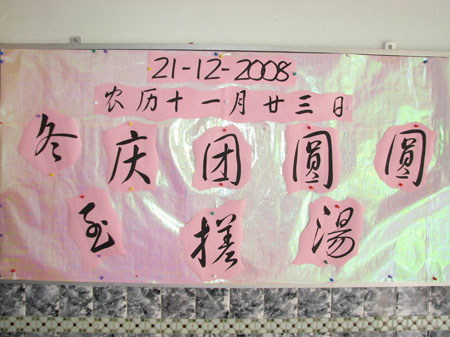 21-12-2008
农历十一月廿三日
冬庆团圆圆
至搓湯